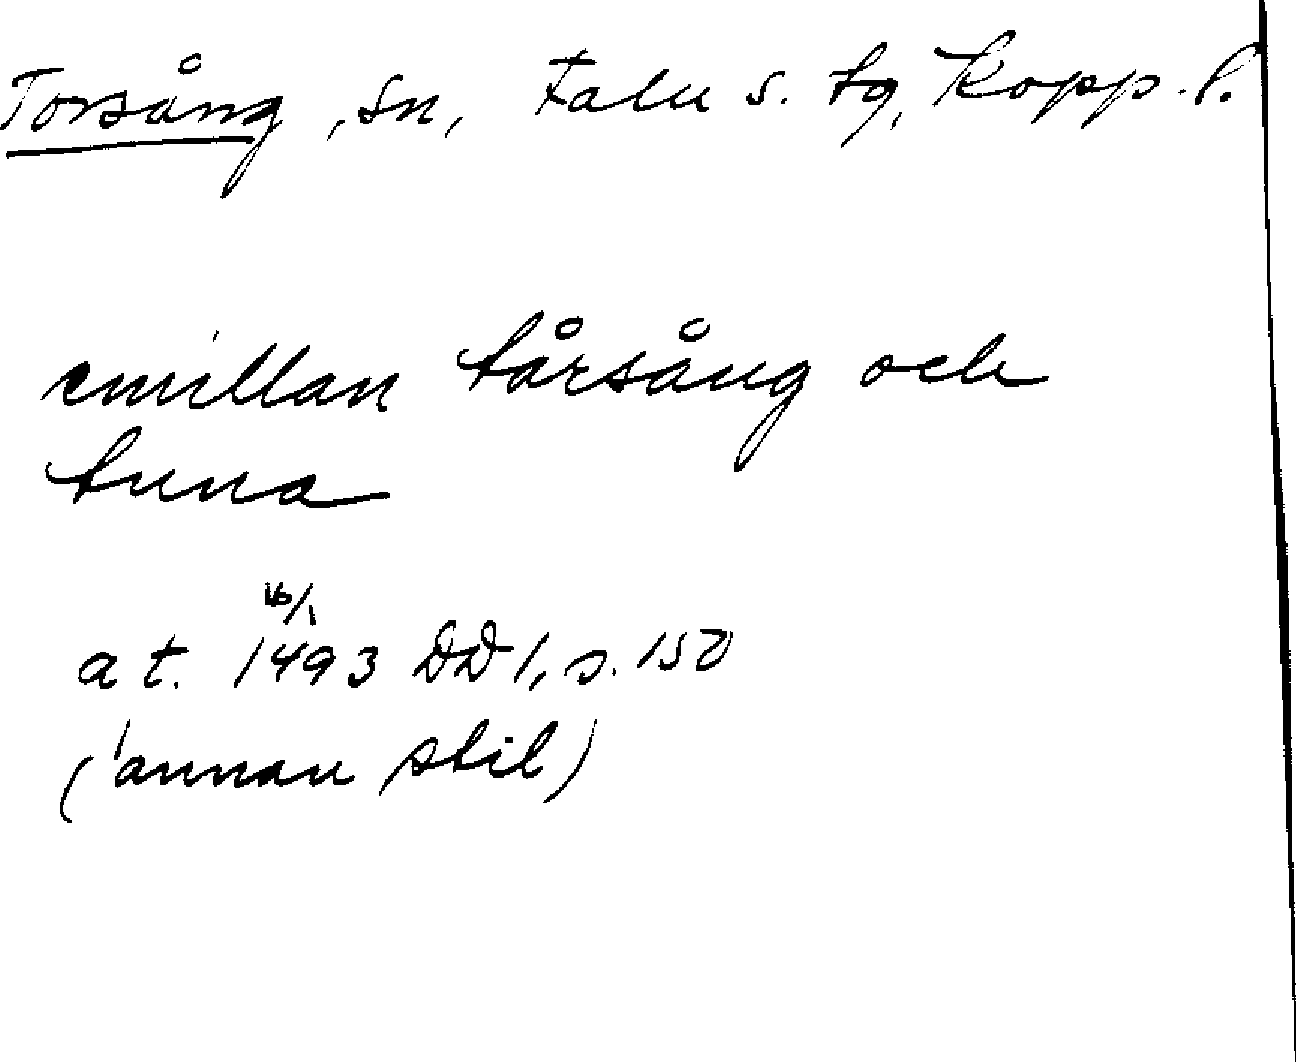 Torsång, sn, Falu s. tg, Kopp. l.
emillan tårsång och
tuna
16/1
a t. 1493 DD 1, s. 150
(annan stil)